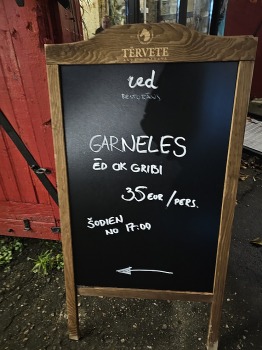 TĒRVETE
red
RESTORĀNS
GARNELES
ĒD CIK GRIBI
35 EUR/PERS.
ŠODIEN
NO 17:00